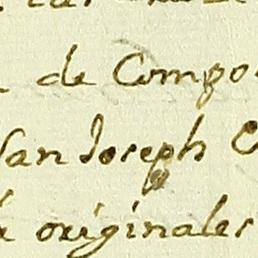 de Compo
San Joseph
originales